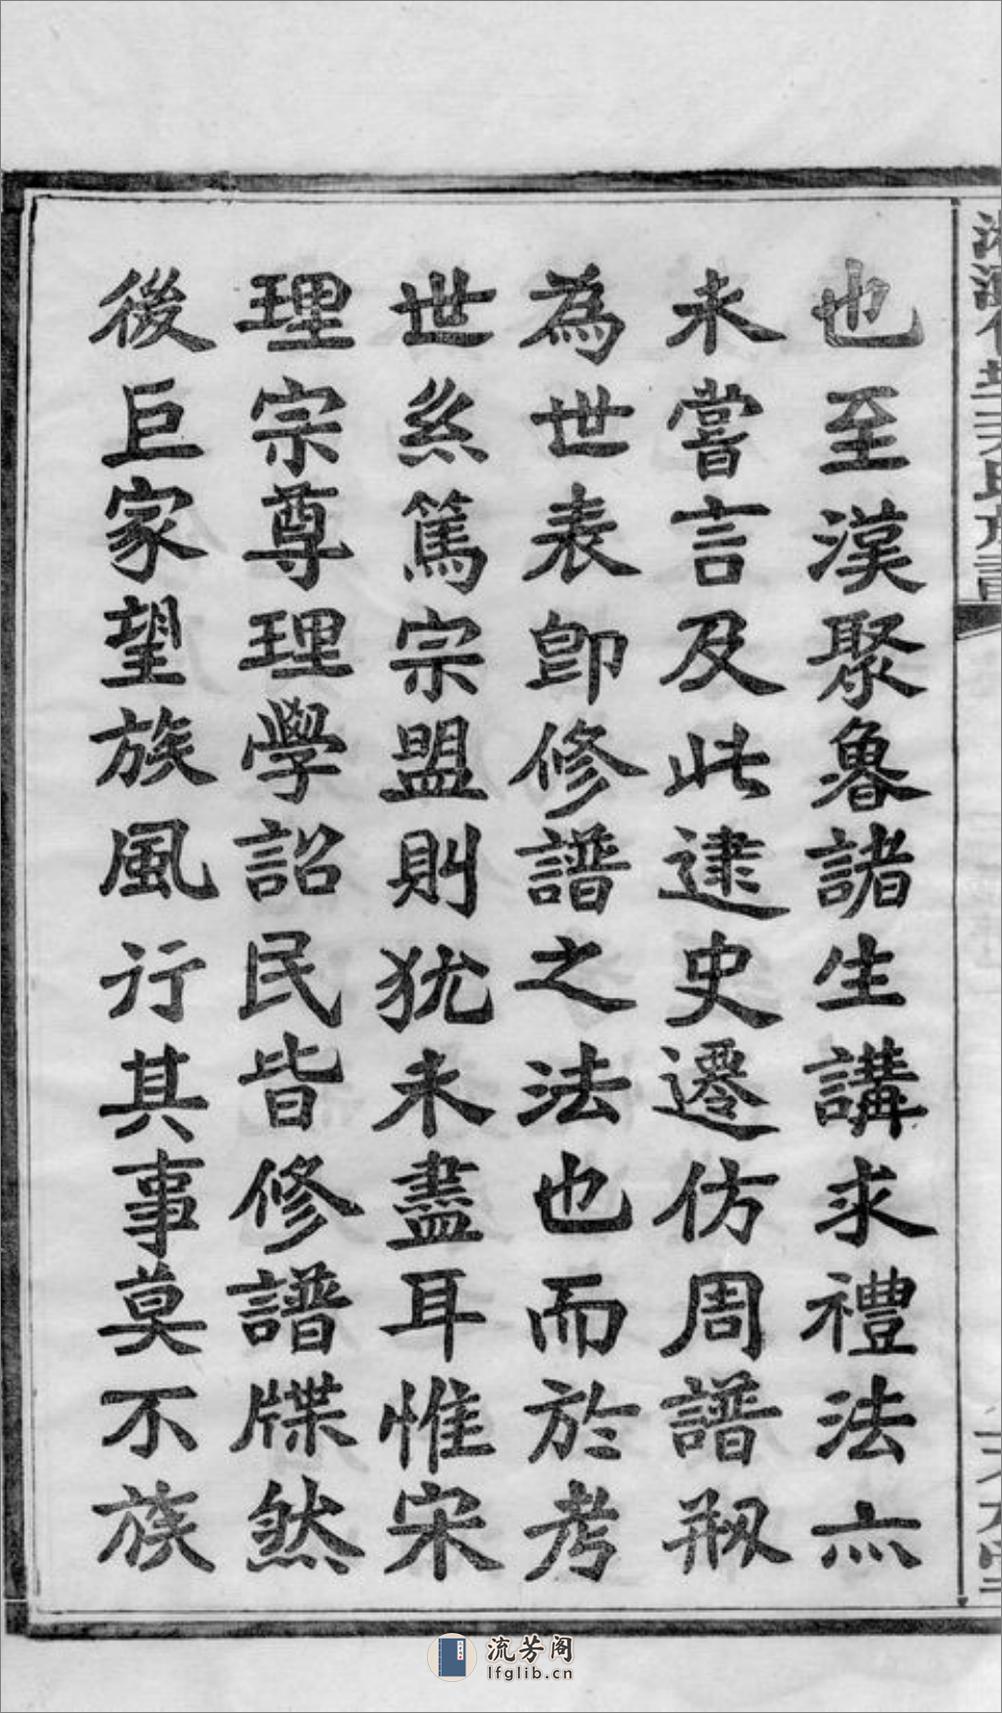 也至漢聚魯諸生講求禮法亦
未嘗言及此逮史遷仿周譜剏
為世表即修譜之法也而於考
世系篤宗盟則犹未盡耳惟宋
理宗尊理學詔民皆修譜牒然
後巨家望族風行其事莫不族
流芳阁
lfglib.cn